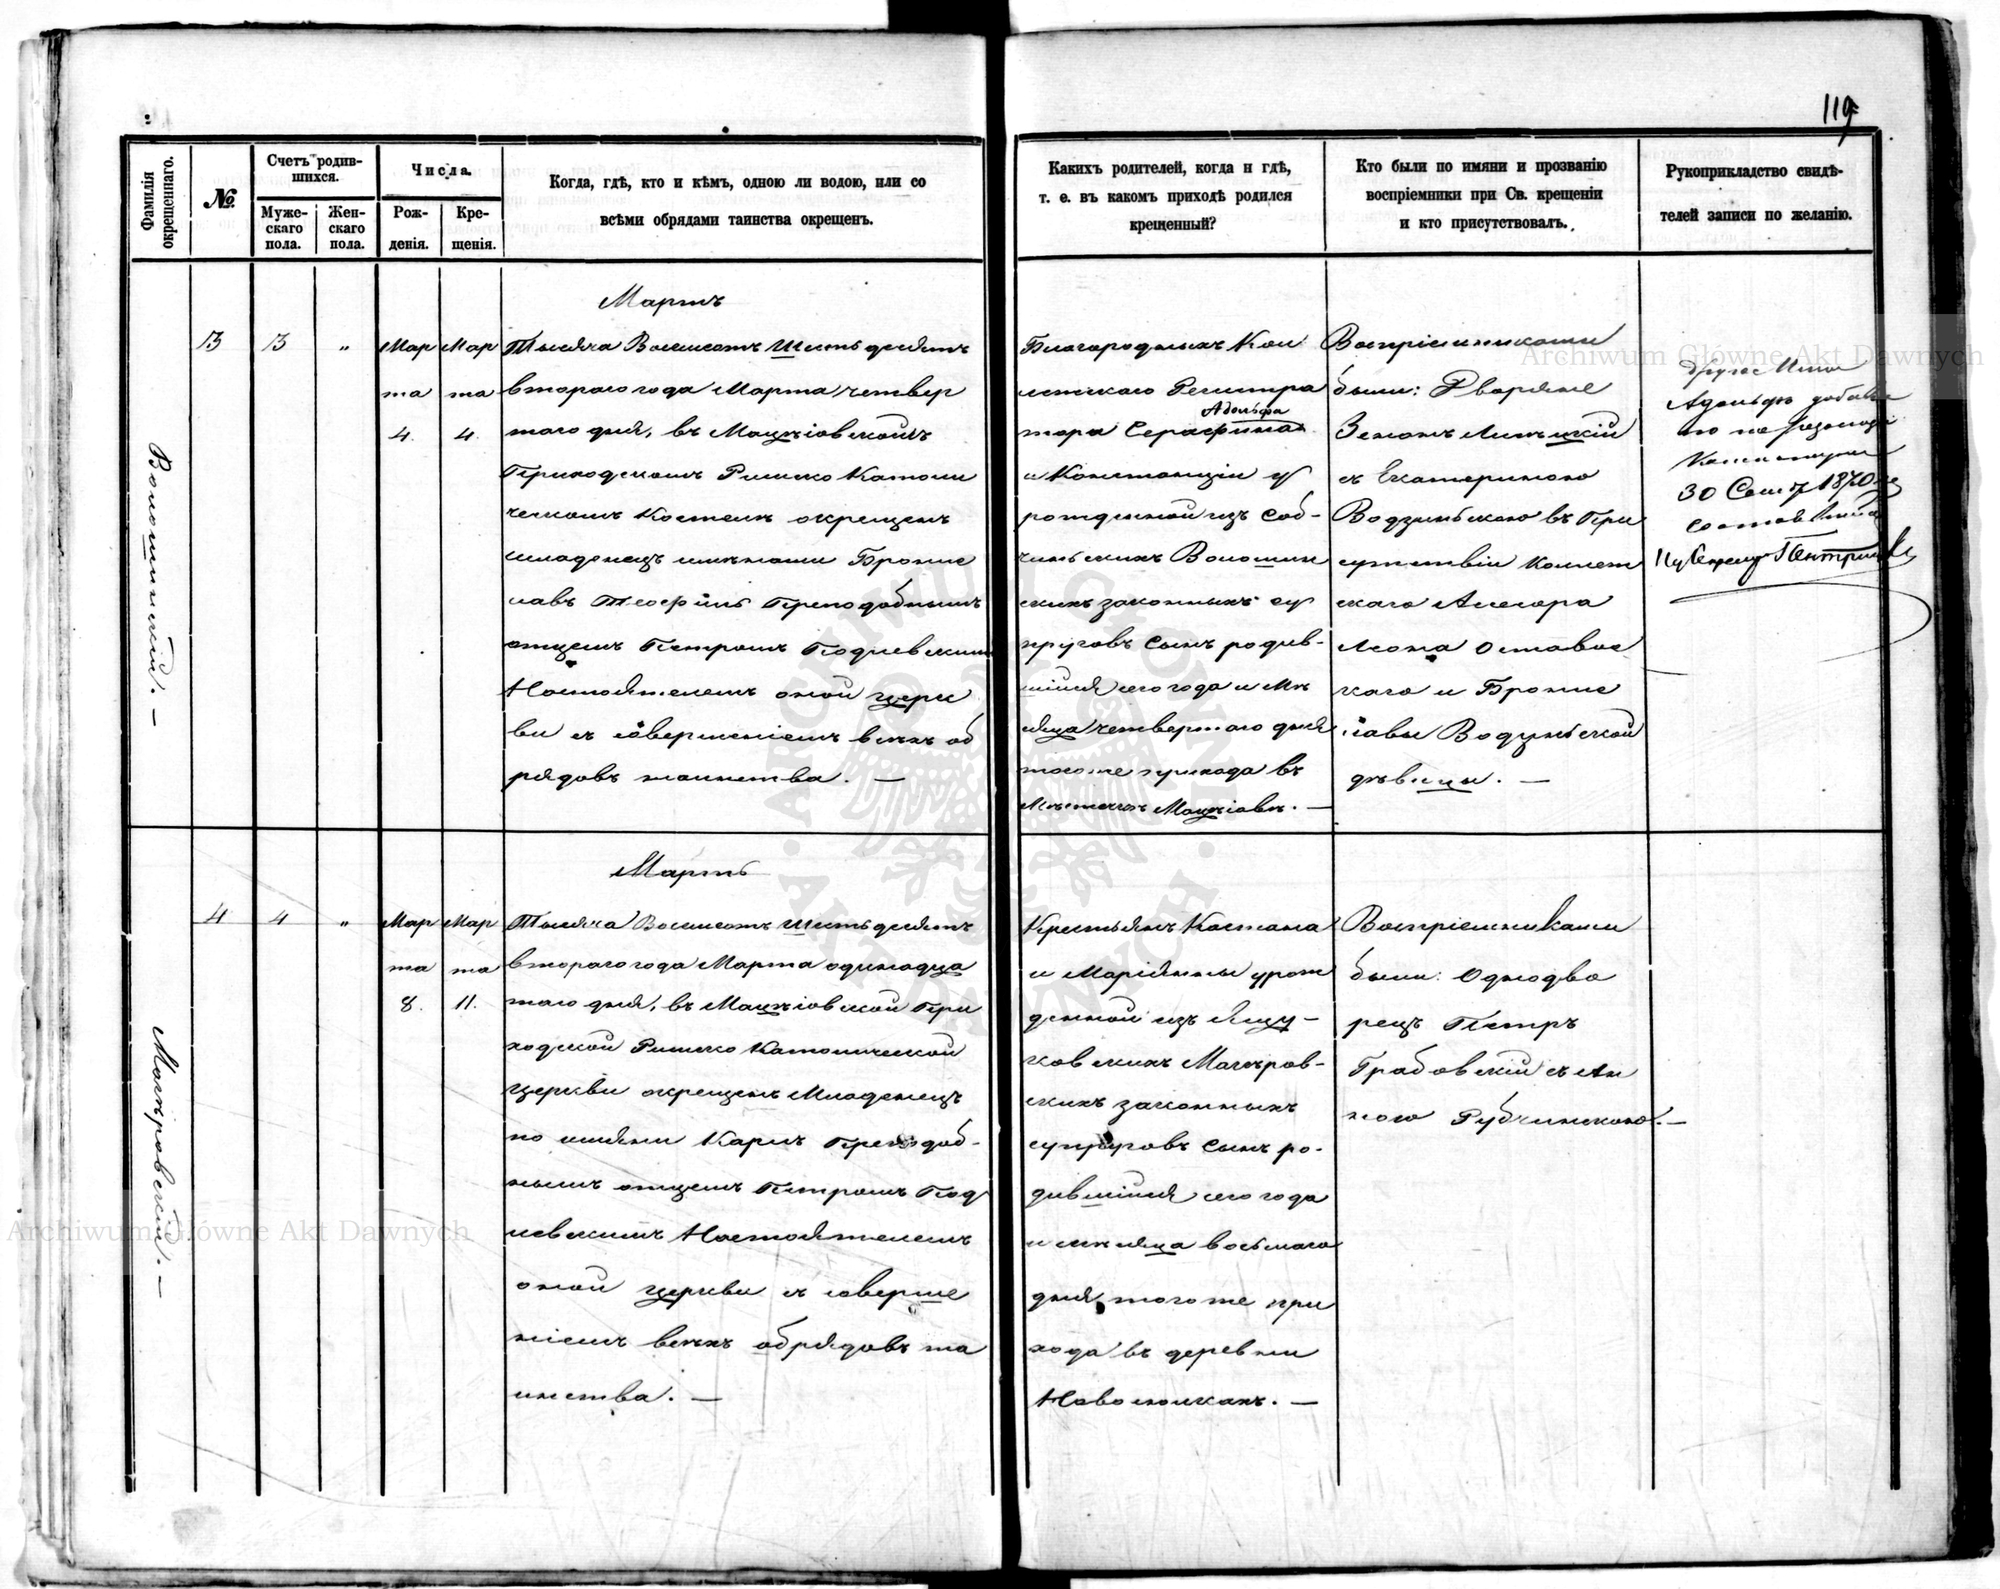 119
Фамилія окрещеннаго.
№
Счетъ родив-
шихся.
Муже-
скаго
пола.
Жен-
скаго
пола.
Числа.
Рож-
денія.
Кре-
щенія.
Когда, гдѣ, кто и кѣмъ, одною ли водою, или со
всѣми обрядами таинства окрещенъ.
Какихъ родителей, когда и гдѣ,
т. е. въ какомъ приходѣ родился
крещенный?
Кто были по имяни и прозванію
воспріемники при Св. крещеніи
и кто присутствовалъ.
Рукоприкладство свидѣ-
телей записи по желанію.
Волошинскій. —
3
3
"
Мар
та
4.
Мар
та
4.
Мартъ
Тысяча Восемсотъ Шестьдесятъ
втораго года Марта четвер
таго дня, въ Мацѣіовскомъ
Приходскомъ Римско Католи
ческомъ Костелѣ окрещенъ
младенецъ имѣнами Брони
славъ Теофилъ Преподобнымъ
отцемъ Петромъ Подлевскимъ
Настоятелемъ оной церк
ви съ совершеніемъ всѣхъ об
рядовъ таинства. —
Благородныхъ Кол
лежскаго Регистра
Адольфа
тора Серафина
и Констанціи у
рожденной изъ Соб-
чинскихъ Волошин
скихъ законныхъ су
пруговъ Сынъ родив-
шійся сего года и мѣ
сяца четвертаго дня
тогоже прихода въ
Мѣстечкѣ Мацѣіовѣ. —
Воспріемниками
были: Дворяне
Зенонъ Липъцкій
съ Екатериною
Водзинскою въ При
сутствіи Коллеж
скаго Асесора
Леона Оставс
каго и Брони
славы Водзинской
дѣвицы. —
другое Имя
Адольфъ добавле
но по резолюціи
Консисторіи
30 Сент 1870 го
Архiwum Główne Akt Dawnych
Мокѣровскій. —
4
4
"
Мар
та
8.
Мар
та
11.
Мартъ
Тысяча Восемсотъ Шестьдесятъ
втораго года Марта одинадца
таго дня, въ Мацѣіовской При
ходской Римско Католической
Церкви окрещенъ Младенецъ
по имяни Карлъ Преподоб-
нымъ отцемъ Петромъ Под
левскимъ Настоятелемъ
оной церкви съ соверше
ніемъ всѣхъ обрядовъ та
инства. —
Крестьянъ Каетана
и Маріянны урож
денной изъ Яцу-
ковскихъ Мокѣров-
скихъ законныхъ
супруговъ Сынъ ро-
дившійся сего года
и мѣсяца восьмаго
дня тогоже при
хода въ деревни
Новоселкахъ. —
Воспріемниками
были: Однодво
рецъ Петръ
Грабовскій съ Ан
ною Рубчинскою. —
Archiwum Główne Akt Dawnych
ARCHIWUM GŁÓWNE AKT DAWNYCH